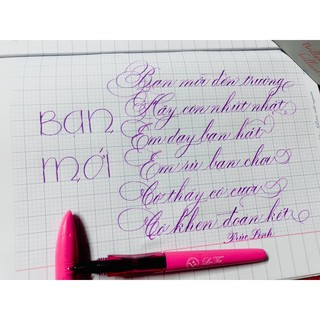 Bạn
mới
Bạn mới đến trường
Hãy còn nhút nhát
Em dạy bạn hát
Em rủ bạn chơi
Cô thấy cô cười
Cô khen đoàn kết
Trúc Linh